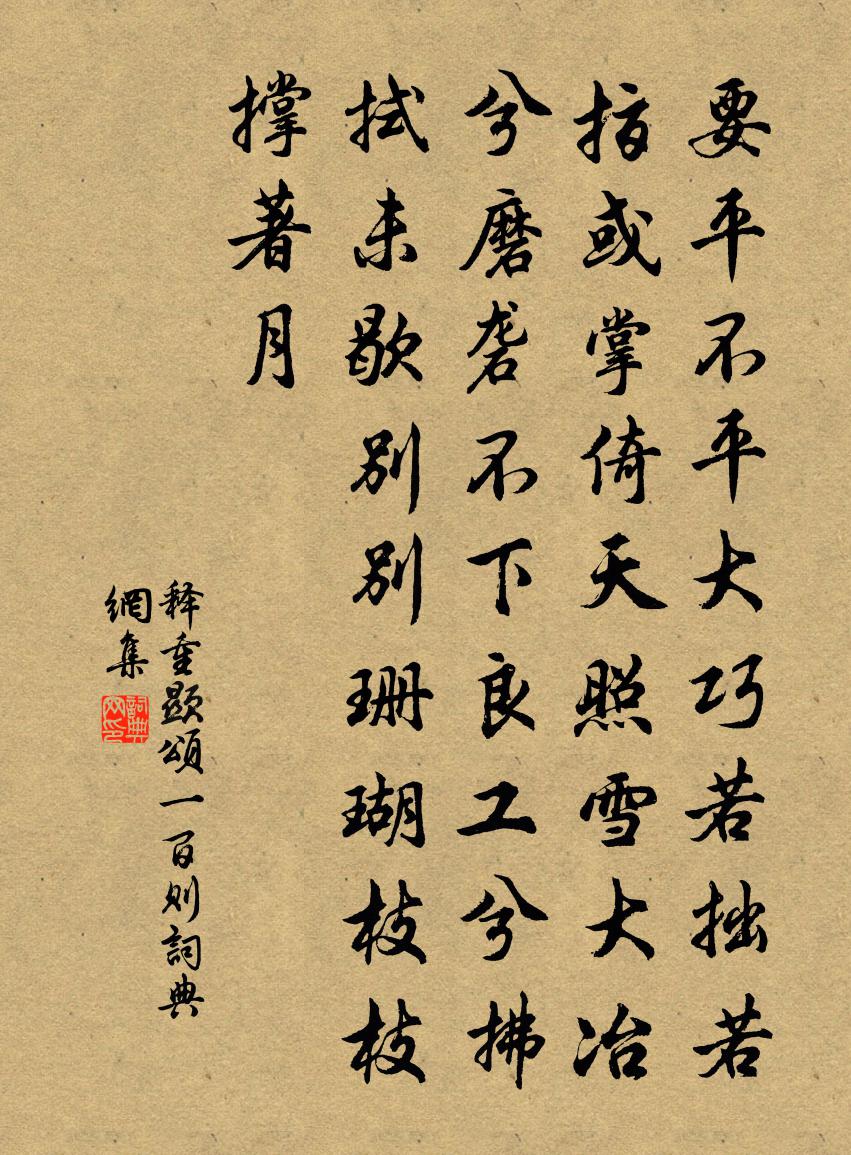 要平不平大巧若拙若
指或掌倚天照雪大冶
兮磨砻不下良工兮拂
拭未歇別別珊瑚枝枝
撐著月
释重顯頌一百则詞典
網集
詞典
网印